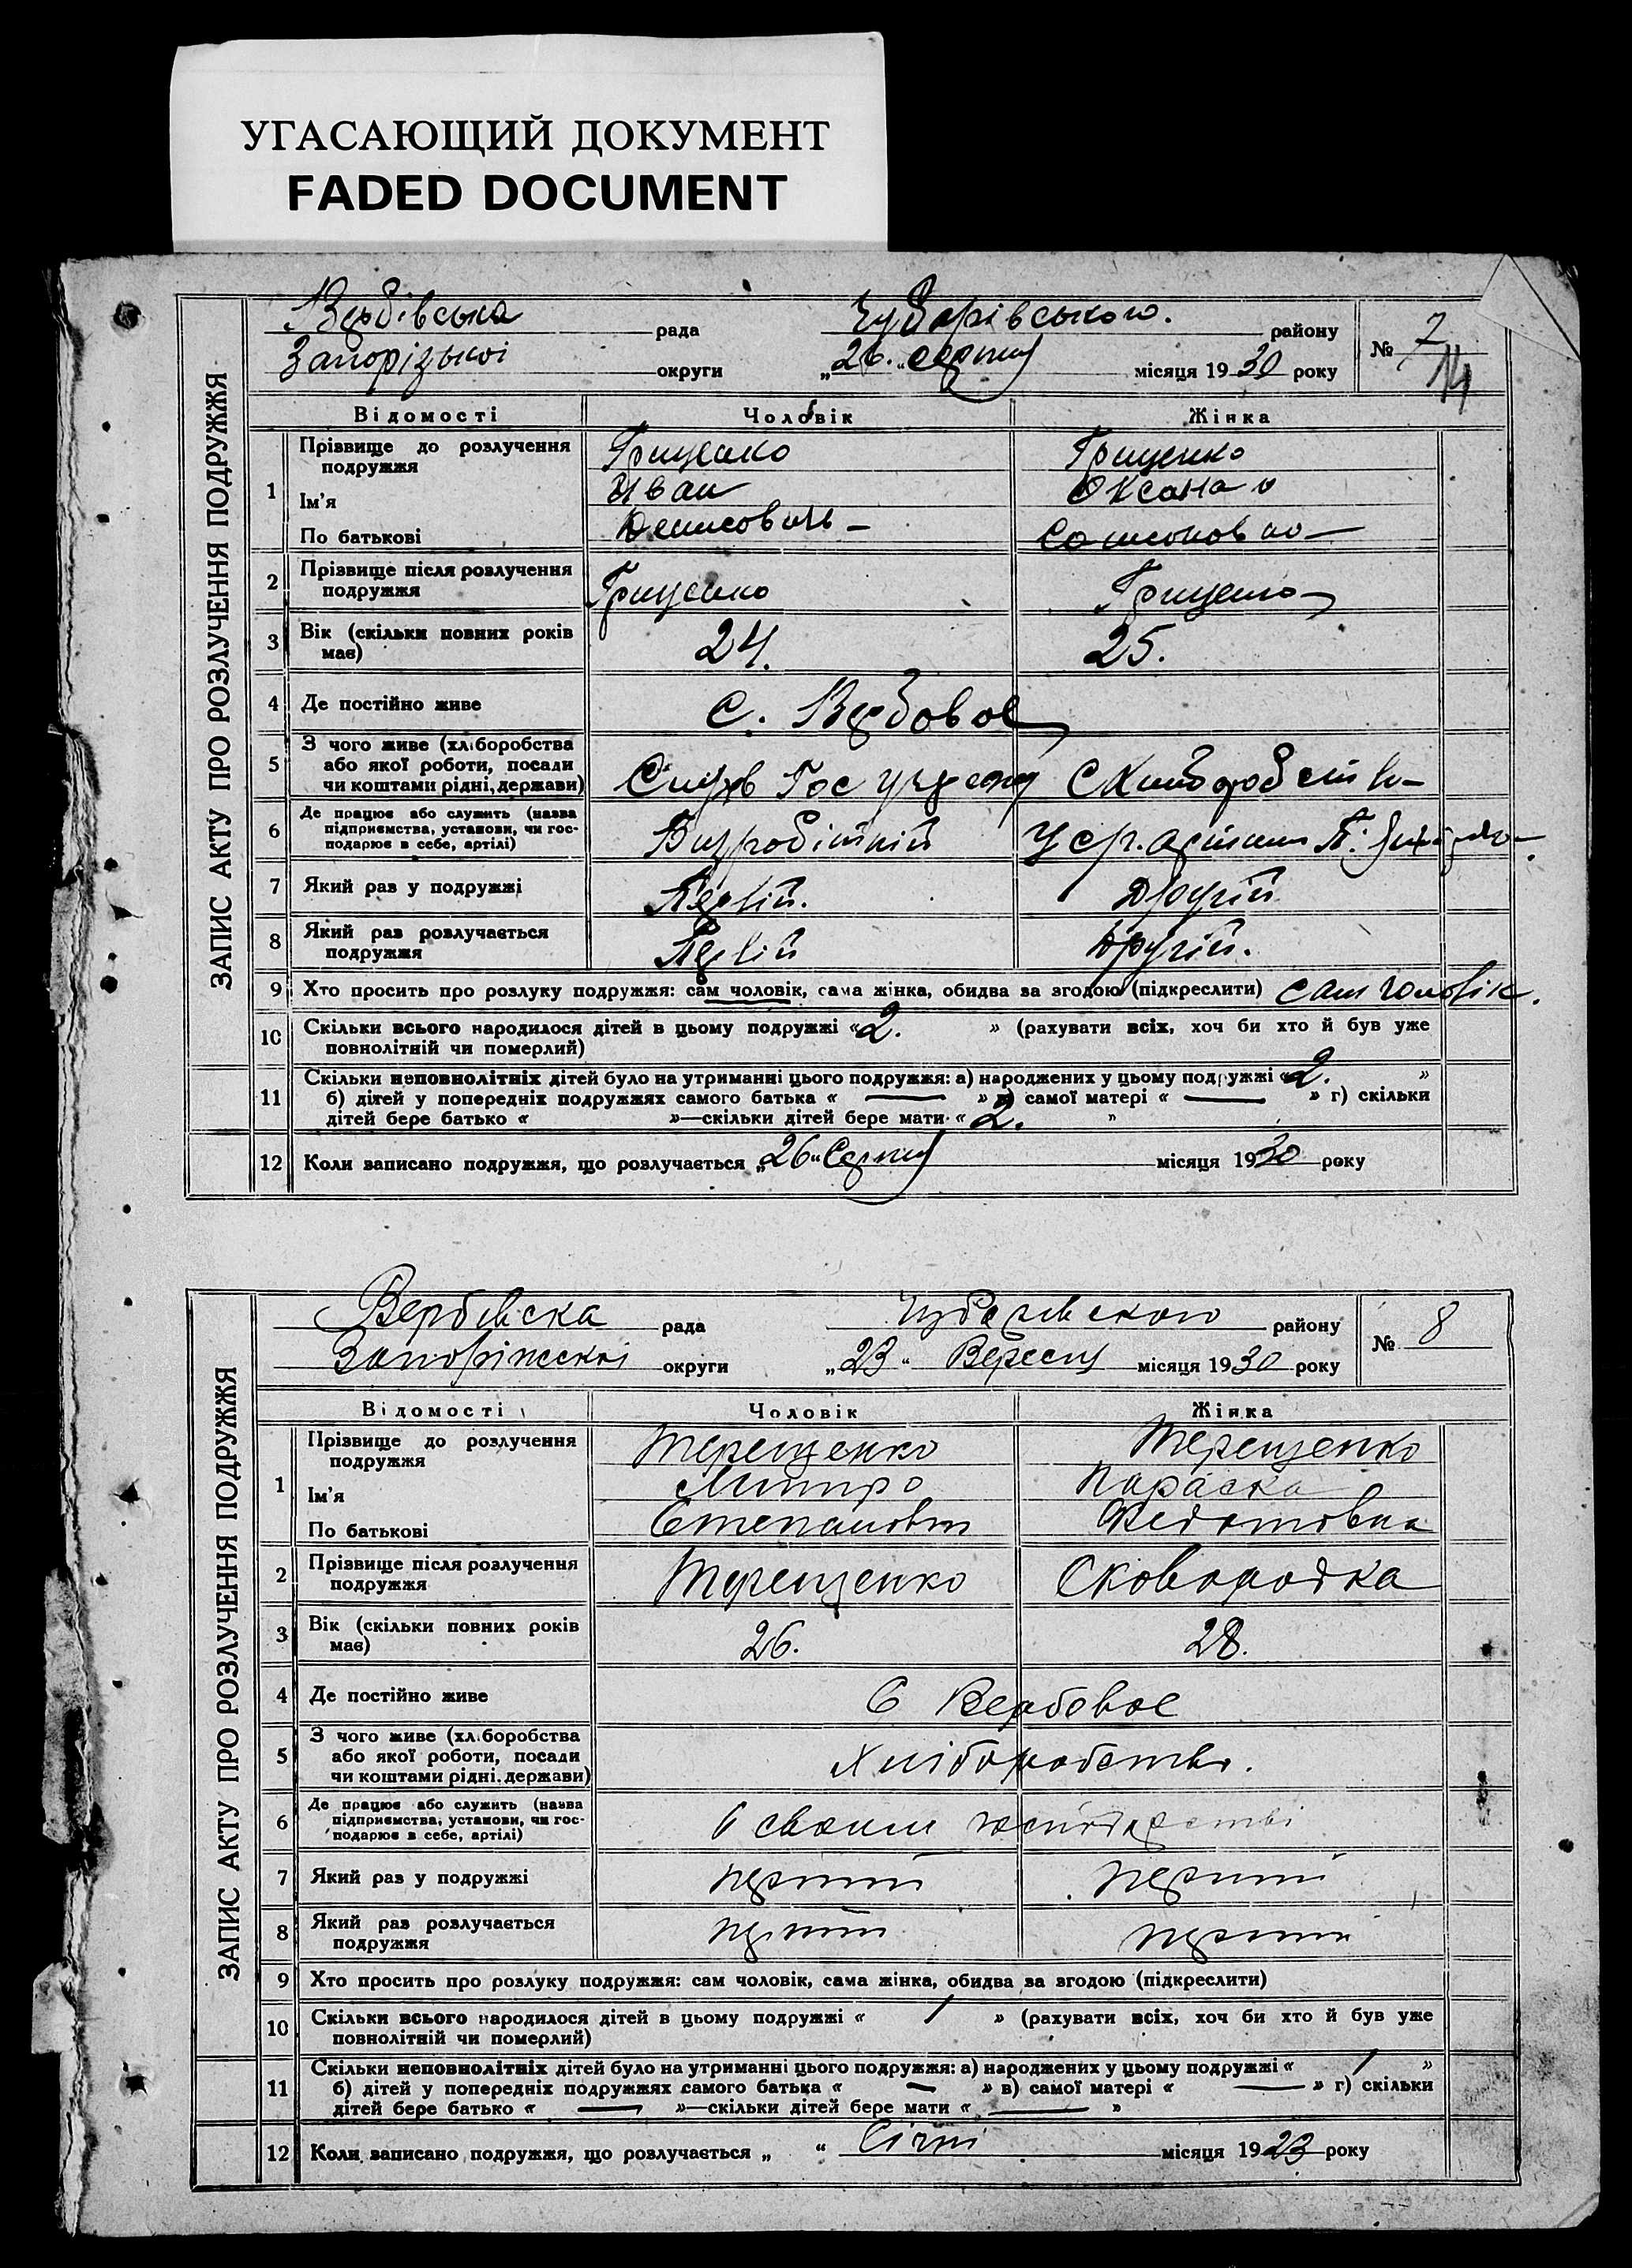 УГАСАЮЩИЙ ДОКУМЕНТ
FADED DOCUMENT
ЗАПИС АКТУ ПРО РОЗЛУЧЕННЯ ПОДРУЖЖЯ
Вербівська рада Чубарівського району № 7
Запорізької округи „26“ серпня місяця 1930 року 14
Відомості Чоловік Жінка
1 Прізвище до розлучення подружжя Грищенко Грищенко
Ім'я Иван Оксана
По батькові Денисовичь Самсоновна
2 Прізвище після розлучення подружжя Грищенко Грищенко
3 Вік (скільки повних років має) 24. 25.
4 Де постійно живе С. Вербовое
5 З чого живе (хліборобства
або якої роботи, посади
чи коштами рідні, держави)
6 Де працює або служить (назва
підприємства, установи, чи гос-
подарює в себе, артілі)
7 Який раз у подружжі Первій. Другій
8 Який раз розлучається подружжя Первій Другій.
9 Хто просить про розлуку подружжя: сам чоловік, сама жінка, обидва за згодою (підкреслити) сам чоловік.
10 Скільки всього народилося дітей в цьому подружжі «2.» (рахувати всіх, хоч би хто й був уже
повнолітній чи померлий)
11 Скільки неповнолітніх дітей було на утриманні цього подружжя: а) народжених у цьому подружжі «2.»
б) дітей у попередніх подружжях самого батька « — » в) самої матері « — » г) скільки
дітей бере батько « »—скільки дітей бере мати «2. »
12 Коли записано подружжя, що розлучається „26“ Серпня місяця 1930 року
ЗАПИС АКТУ ПРО РОЗЛУЧЕННЯ ПОДРУЖЖЯ
Вербівска рада Чубарівского району № 8
Запоріжскої округи „23“ Вересня місяця 1930 року
Відомості Чоловік Жінка
1 Прізвище до розлучення подружжя Терещенко Терещенко
Ім'я Митро Параска
По батькові Степанович Федотовна
2 Прізвище після розлучення подружжя Терещенко Сковородка
3 Вік (скільки повних років має) 26. 28.
4 Де постійно живе С Вербовое
5 З чого живе (хліборобства
або якої роботи, посади
чи коштами рідні, держави) Хліборобство.
6 Де працює або служить (назва
підприємства, установи, чи гос-
подарює в себе, артілі) в своим господарстві
7 Який раз у подружжі перший перший
8 Який раз розлучається подружжя перший перший
9 Хто просить про розлуку подружжя: сам чоловік, сама жінка, обидва за згодою (підкреслити)
10 Скільки всього народилося дітей в цьому подружжі « 1 » (рахувати всіх, хоч би хто й був уже
повнолітній чи померлий)
11 Скільки неповнолітніх дітей було на утриманні цього подружжя: а) народжених у цьому подружжі « 1 »
б) дітей у попередніх подружжях самого батька « — » в) самої матері « — » г) скільки
дітей бере батько « — »—скільки дітей бере мати « — »
12 Коли записано подружжя, що розлучається „ “ Січні місяця 1923 року